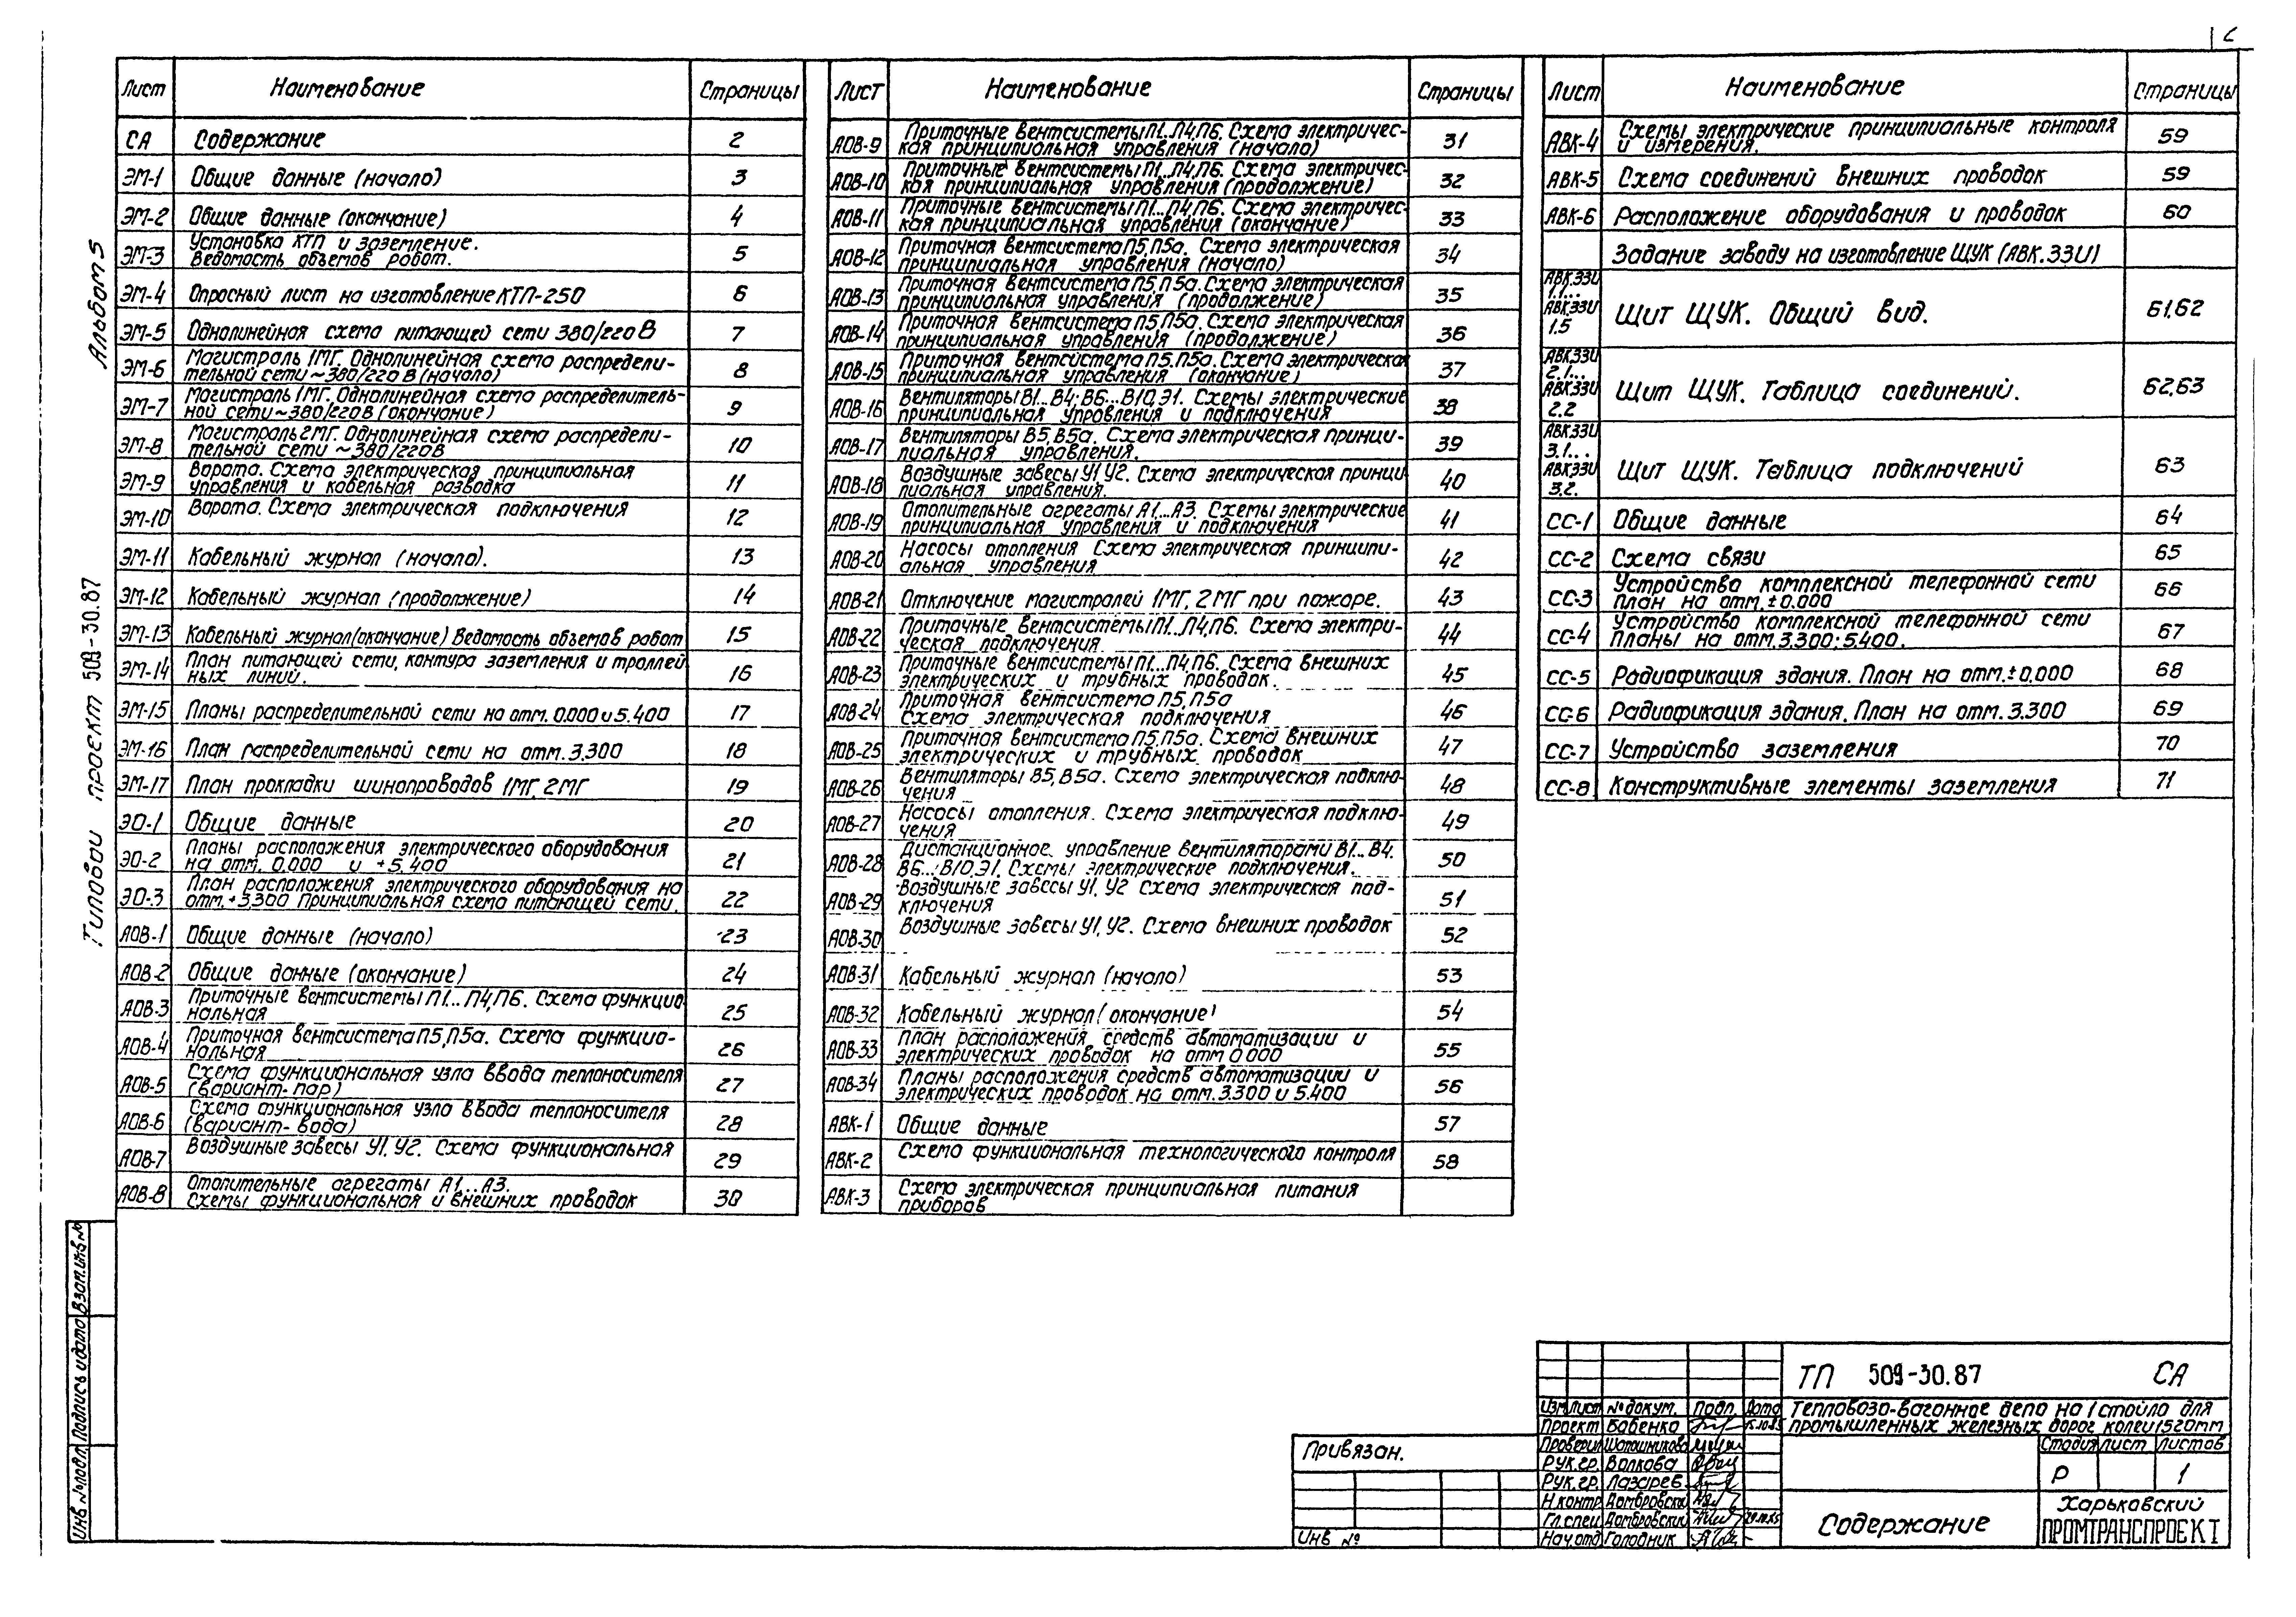 Альбом 5
Типовой проект 509-30.87
Лист Наименование Страницы
СА Содержание 2
ЭМ-1 Общие данные (начало) 3
ЭМ-2 Общие данные (окончание) 4
ЭМ-3 Установка КТП и заземление.
Ведомость объемов работ. 5
ЭМ-4 Опросный лист на изготовление КТП-250 6
ЭМ-5 Однолинейная схема питающей сети 380/220 В 7
ЭМ-6 Магистраль 1МГ. Однолинейная схема распредели-
тельной сети ~380/220 В (начало) 8
ЭМ-7 Магистраль 1МГ. Однолинейная схема распределитель-
ной сети ~380/220В (окончание) 9
ЭМ-8 Магистраль 2МГ. Однолинейная схема распредели-
тельной сети ~380/220В 10
ЭМ-9 Ворота. Схема электрическая принципиальная
управления и кабельная разводка 11
ЭМ-10 Ворота. Схема электрическая подключения 12
ЭМ-11 Кабельный журнал (начало). 13
ЭМ-12 Кабельный журнал (продолжение) 14
ЭМ-13 Кабельный журнал (окончание) Ведомость объемов работ 15
ЭМ-14 План питающей сети, контура заземления и троллей
ных линий. 16
ЭМ-15 Планы распределительной сети на отм. 0.000 и 5.400 17
ЭМ-16 План распределительной сети на отм. 3.300 18
ЭМ-17 План прокладки шинопроводов 1МГ, 2МГ 19
ЭО-1 Общие данные 20
ЭО-2 Планы расположения электрического оборудования
на отм. 0.000 и +5.400 21
ЭО-3 План расположения электрического оборудования на
отм. +3,300 Принципиальная схема питающей сети. 22
АОВ-1 Общие данные (начало) 23
АОВ-2 Общие данные (окончание) 24
АОВ-3 Приточные вентсистемы П1...П4,П6. Схема функцио
нальная 25
АОВ-4 Приточная вентсистема П5,П5а. Схема функцио-
нальная 26
АОВ-5 Схема функциональная узла ввода теплоносителя
(вариант-пар) 27
АОВ-6 Схема функциональная узла ввода теплоносителя
(вариант-вода) 28
АОВ-7 Воздушные завесы У1, У2. Схема функциональная 29
АОВ-8 Отопительные агрегаты А1...А3.
Схемы функциональная и внешних проводок 30
Лист Наименование Страницы
АОВ-9 Приточные вентсистемы П1...П4,П6. Схема электричес-
кая принципиальная управления (начало) 31
АОВ-10 Приточные вентсистемы П1...П4,П6. Схема электричес-
кая принципиальная управления (продолжение) 32
АОВ-11 Приточные вентсистемы П1...П4,П6. Схема электричес-
кая принципиальная управления (окончание) 33
АОВ-12 Приточная вентсистема П5,П5а. Схема электрическая
принципиальная управления (начало) 34
АОВ-13 Приточная вентсистема П5,П5а. Схема электрическая
принципиальная управления (продолжение) 35
АОВ-14 Приточная вентсистема П5,П5а. Схема электрическая
принципиальная управления (продолжение) 36
АОВ-15 Приточная вентсистема П5.П5а. Схема электрическая
принципиальная управления (окончание) 37
АОВ-16 Вентиляторы В1...В4; В6...В10,Э1. Схемы электрические
принципиальная управления и подключения 38
АОВ-17 Вентиляторы В5,В5а. Схема электрическая принци-
пиальная управления. 39
АОВ-18 Воздушные завесы У1,У2. Схема электрическая принци
пиальная управления. 40
АОВ-19 Отопительные агрегаты А1...А3. Схемы электрические
принципиальная управления и подключения 41
АОВ-20 Насосы отопления Схема электрическая принципи-
альная управления 42
АОВ-21 Отключение магистралей 1МГ, 2МГ при пожаре. 43
АОВ-22 Приточные вентсистемы П1...П4,П6. Схема электри-
ческая подключения 44
АОВ-23 Приточные вентсистемы П1...П4,П6. Схема внешних
электрических и трубных проводок. 45
АОВ-24 Приточная вентсистема П5,П5а
Схема электрическая подключения 46
АОВ-25 Приточная вентсистема П5,П5а. Схема внешних
электрических и трубных проводок 47
АОВ-26 Вентиляторы В5,В5а. Схема электрическая подклю-
чения 48
АОВ-27 Насосы отопления. Схема электрическая подклю-
чения 49
АОВ-28 Дистанционное управление вентиляторами В1...В4.
В6...В10,Э1. Схемы электрические подключения. 50
АОВ-29 Воздушные завесы У1, У2 Схема электрическая под-
ключения 51
АОВ-30 Воздушные завесы У1, У2. Схема внешних проводок 52
АОВ-31 Кабельный журнал (начало) 53
АОВ-32 Кабельный журнал (окончание) 54
АОВ-33 План расположения средств автоматизации и
электрических проводок на отм 0.000 55
АОВ-34 Планы расположения средств автоматизации и
электрических проводок на отм. 3.300 и 5.400 56
АВК-1 Общие данные 57
АВК-2 Схема функциональная технологического контроля 58
АВК-3 Схема электрическая принципиальная питания
приборов
Лист Наименование Страницы
АВК-4 Схемы электрические принципиальные контроля
и измерения. 59
АВК-5 Схема соединений внешних проводок 59
АВК-6 Расположение оборудования и проводок 60
Задание заводу на изготовление ЩУК (АВК.ЗЗИ)
АВК.ЗЗИ
1.1...
АВК.ЗЗИ
1.5
Щит ЩУК. Общий вид. 61,62
АВК.ЗЗИ
2.1...
АВК.ЗЗИ
2.2
Щит ЩУК. Таблица соединений. 62,63
АВК.ЗЗИ
3.1...
АВК.ЗЗИ
3.2.
Щит ЩУК. Таблица подключений 63
СС-1 Общие данные 64
СС-2 Схема связи 65
СС-3 Устройство комплексной телефонной сети
План на отм. ±0.000 66
СС-4 Устройство комплексной телефонной сети
Планы на отм. 3.300; 5.400. 67
СС-5 Радиофикация здания. План на отм. ±0,000 68
СС-6 Радиофикация здания. План на отм. 3.300 69
СС-7 Устройство заземления 70
СС-8 Конструктивные элементы заземления 71
Инв №подл. Подпись и дата Взам.инв №
Привязан.
Инв №
ТП 509-30.87 СА
Изм Лист № докум. Подп. Дата
Тепловозо-вагонное депо на 1 стойло для
промышленных железных дорог колеи 1520мм
Проект Бабенко
Проверил Шапошникова
Рук.гр. Волкова
Рук.гр. Лазарев
Н.контр. Домбровский
Гл.спец Домбровский
Нач.отд Голодник
Стадия Лист Листов
Р 1
Содержание
Харьковский
ПРОМТРАНСПРОЕКТ